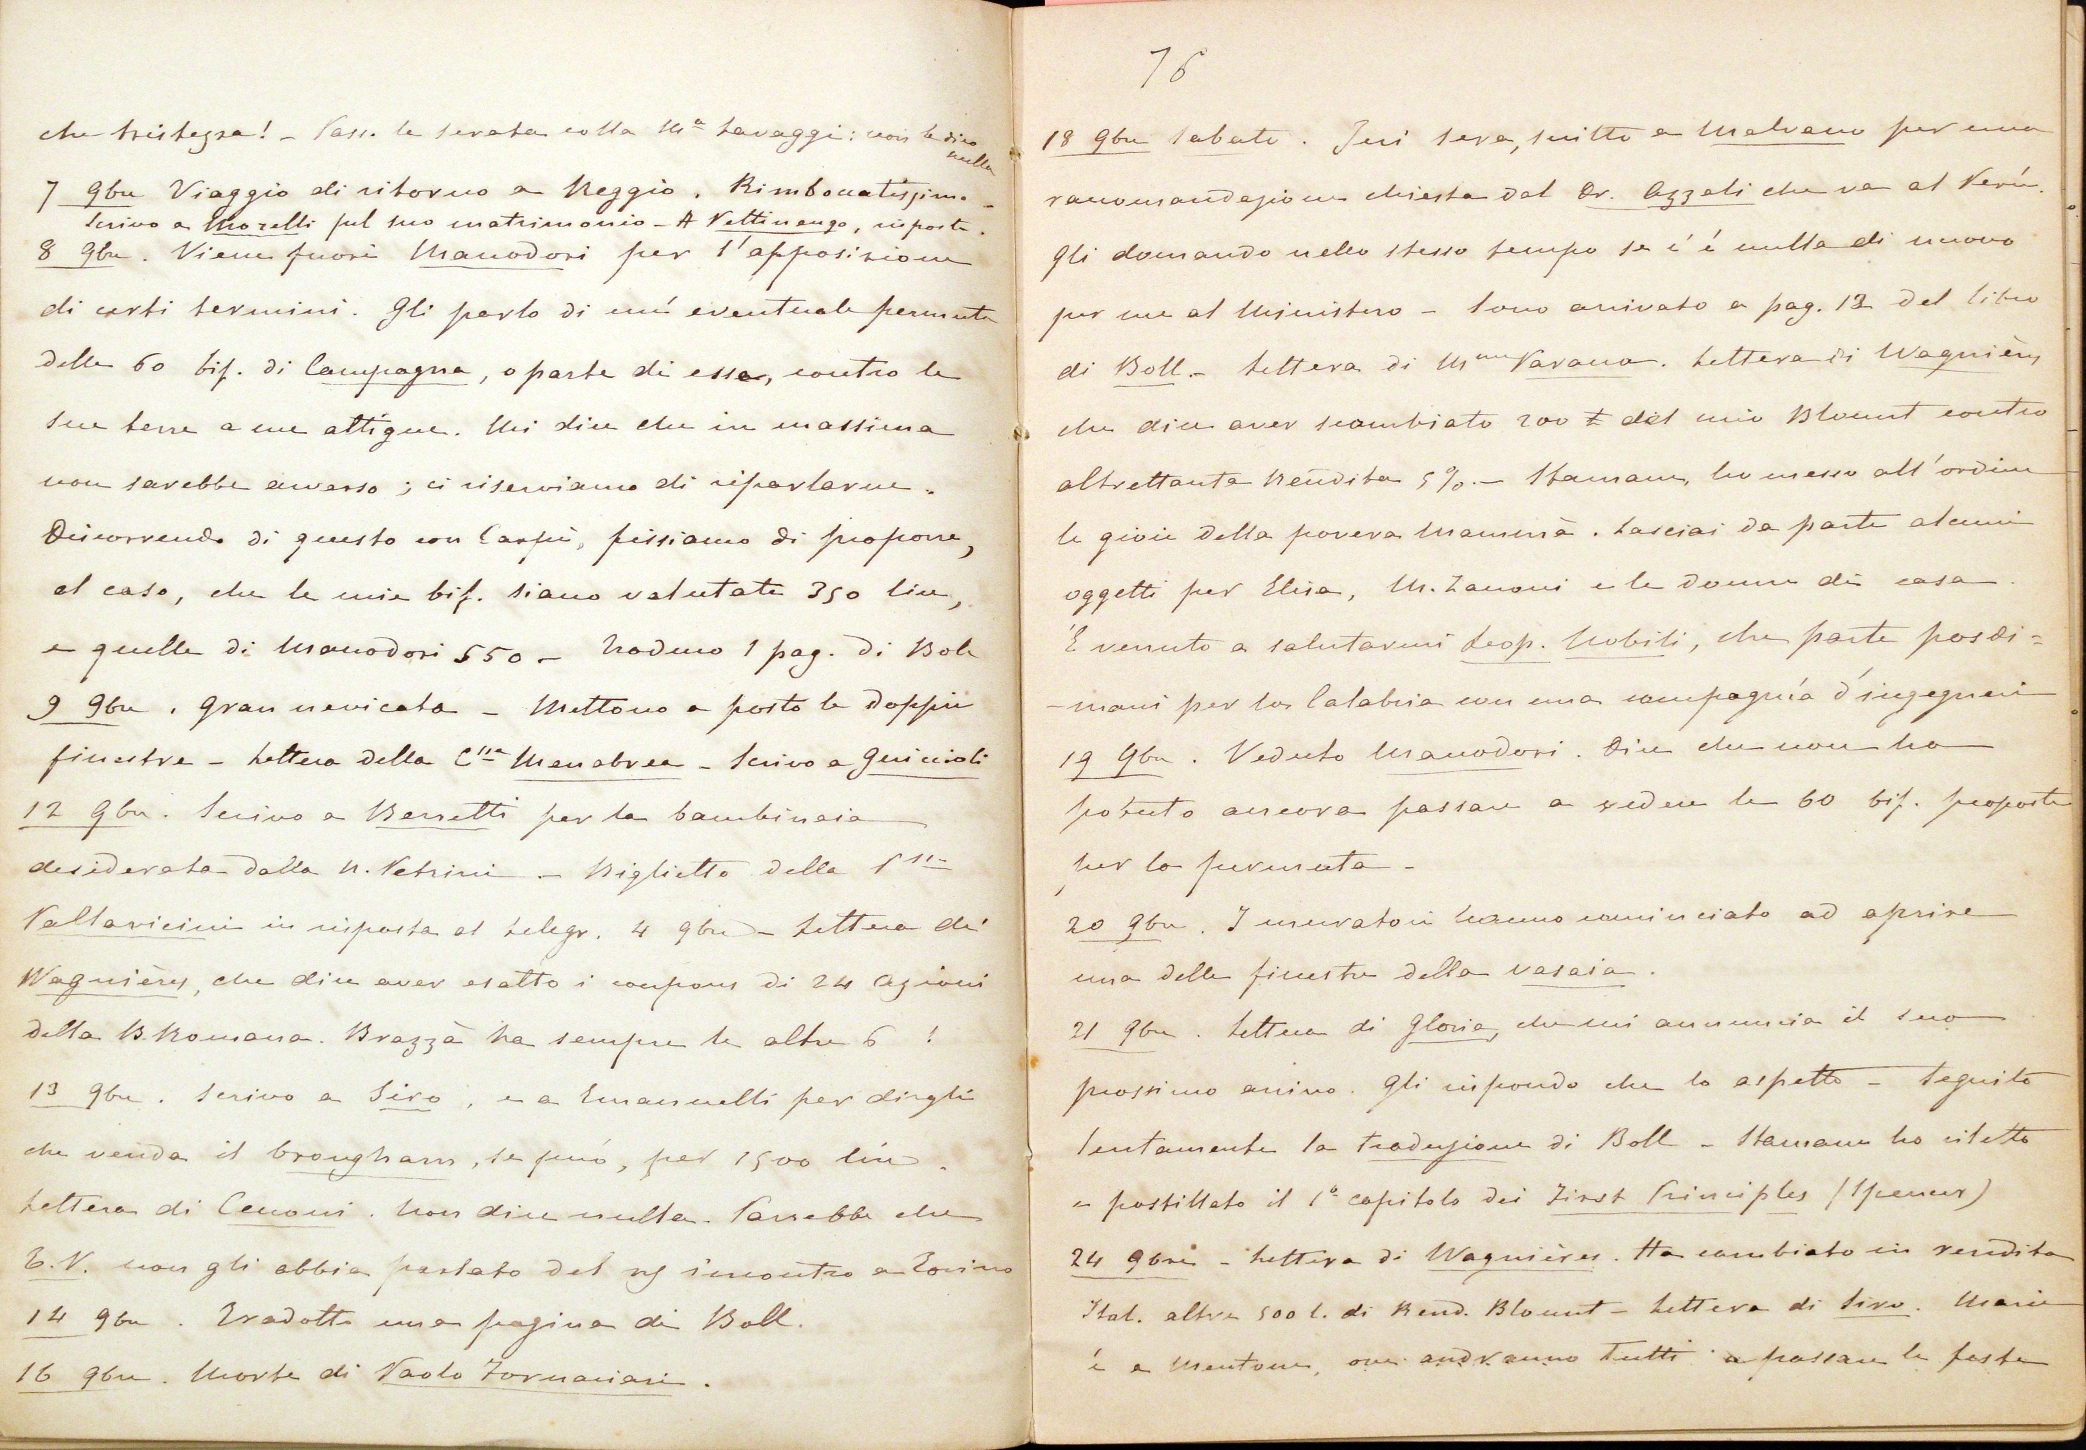 che tristezza! – Pass. la serata colla Mª Lavaggi: non le dico
nulla
7 9bre Viaggio di ritorno a Reggio.
Scrivo a Morelli sul suo matrimonio – A Pettinengo, risposta.
8 9bre. Viene fuori Manodori per l'apposizione
di certi termini. Gli parlo di un' eventuale permuta
delle 60 bif. di Campagna, o parte di esse, contro le
sue terre a me attigue. Mi dice che in massima
non sarebbe avverso; ci riserviamo di riparlarne.
Discorrendo di questo con Carpi, fissiamo di proporre,
al caso, che le mie bif. siano valutate 350 lire,
e quelle di Manodori 550 – Traduco 1 pag. di Boll
9 9bre. Gran nevicata – Mettono a posto le doppie
finestre – Lettera della Cssa Menabrea – Scrivo a Guiccioli
12 9bre. Scrivo a Berretti per la bambinaia
desiderata dalla N. Petrini – Biglietto della Pssa
Pallavicini in risposta al telegr. 4 9bre – Lettera di
Wagnières, che dice aver esatto i coupons di 24 Azioni
della B. Romana. Brazzà ha sempre le altre 6 !
13 9bre. Scrivo a Siro, e a Emanuelli per dirgli
che venda il brougham, se può, per 1500 lire.
Lettera di Cenoni. Non dice nulla. Parrebbe che
E.V. non gli abbia parlato del ns incontro a Torino
14 9bre. Tradotta una pagina di Boll.
16 9bre. Morte di Paolo Fornaciari.
76
18 9bre Sabato. Ieri sera, scritto a Malvano per una
raccomandazione chiesta dal Dr. Azzali che va al Perù.
Gli domando nello stesso tempo se c'è nulla di nuovo
per me al Ministero – Sono arrivato a pag. 13 del libro
di Boll – Lettera di Mme Pavana. Lettera di Wagnières
che dice aver scambiato 200 £ del mio Blount contro
altrettanta Rendita 5%. – Stamane, ho messo all'ordine
le gioie della povera Mammà. Lasciai da parte alcuni
oggetti per Elisa, M. Zanoni e le donne di casa.
È venuto a salutarmi Leop. Nobili, che parte posdi=
-mani per la Calabria con una compagnia d'ingegneri
19 9bre. Veduto Manodori. Dice che non ha
potuto ancora passare a vedere le 60 bif. proposte
per la permuta –
20 9bre. I muratori hanno cominciato ad aprire
una delle finestre della vasaia.
21 9bre. Lettera di Gloria, che mi annuncia il suo
prossimo arrivo. Gli rispondo che lo aspetto – Seguito
lentamente la traduzione di Boll – Stamane ho riletto
e postillato il 1º capitolo dei First Principles (Spencer)
24 9bre – Lettera di Wagnières. Ha cambiato in rendita
Ital. altre 500 l. di Rend. Blount – Lettera di Siro. Marie
è a Mentone, ove andranno tutti a passare le feste